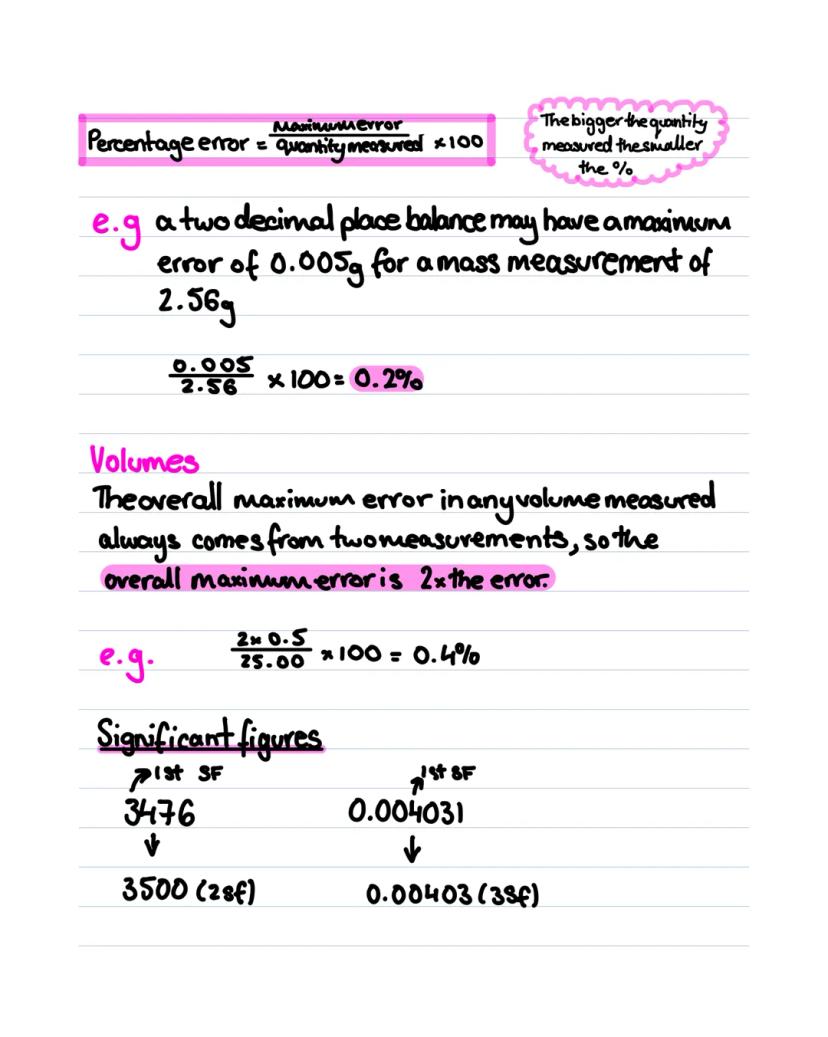 Percentage error = Maximum error / quantity measured × 100
The bigger the quantity
measured the smaller
the %
e.g a two decimal place balance may have a maximum
error of 0.005g for a mass measurement of
2.56g
0.005 / 2.56 × 100 = 0.2%
Volumes
The overall maximum error in any volume measured
always comes from two measurements, so the
overall maximum error is 2x the error.
e.g. 2× 0.5 / 25.00 × 100 = 0.4%
Significant figures
↗1st SF ↗1st SF
3476 0.004031
↓ ↓
3500 (2sf) 0.00403 (3sf)